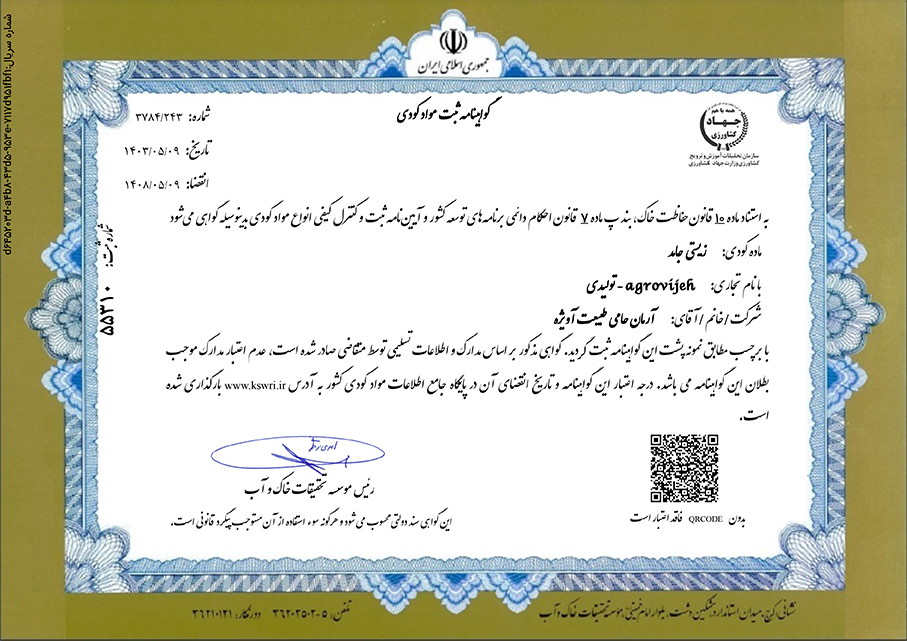 جمهوری اسلامی ایران
گواهینامه ثبت مواد کودی
همه با هم
جهاد
کشاورزی
سازمان تحقیقات آموزش و ترویج
کشاورزی وزارت جهاد کشاورزی
شماره: ۳۷۸۴/۲۴۳
تاریخ: ۱۴۰۳/۰۵/۰۹
انقضا: ۱۴۰۸/۰۵/۰۹
به استناد ماده ۱۰ قانون حفاظت خاک، بند پ ماده ۷ قانون احکام دائمی برنامه های توسعه کشور و آیین نامه ثبت و کنترل کیفی انواع مواد کودی بدینوسیله گواهی می شود
ماده کودی: زیستی جامد
با نام تجاری: agrovijeh - تولیدی
شرکت / خانم / آقای: آرمان حامی طبیعت آویژه
با برچسب مطابق نمونه پشت این گواهینامه ثبت گردید. گواهی مذکور بر اساس مدارک و اطلاعات تسلیمی توسط متقاضی صادر شده است، عدم اعتبار مدارک موجب
بطلان این گواهینامه می باشد. درجه اعتبار این گواهینامه و تاریخ انقضای آن در پایگاه جامع اطلاعات مواد کودی کشور به آدرس www.kswri.ir بارگذاری شده
است.
شماره ثبت: ۵۵۳۱۰
رئیس موسسه تحقیقات خاک و آب
بدون QRCODE فاقد اعتبار است
این گواهی سند دولتی محسوب می شود و هرگونه سوء استفاده از آن مستوجب پیگرد قانونی است.
نشانی: کرج، میدان استاندارد، مشکین دشت، بلوار امام خمینی، موسسه تحقیقات خاک و آب
تلفن: ۵-۳۶۲۰۳۵۰۲ دورنگار: ۳۶۲۱۰۱۲۱